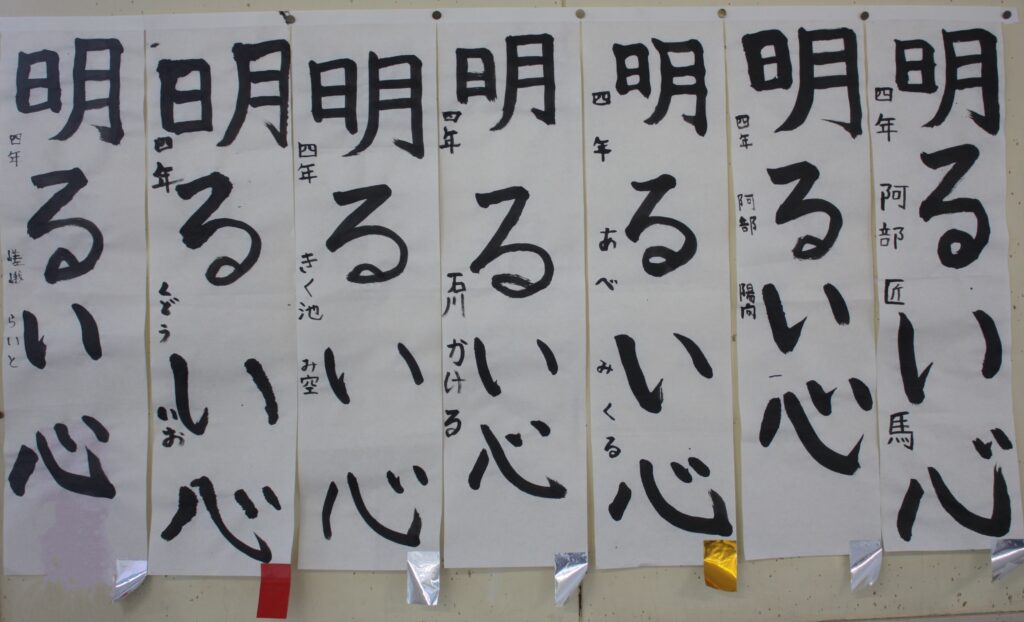 明るい心
四年 阿部 匠馬
明るい心
四年 阿部 陽向
明るい心
四年 あべ みくる
明るい心
四年 石川 かける
明るい心
四年 きく池 み空
明るい心
四年 くどう いお
明るい心
四年 らいと